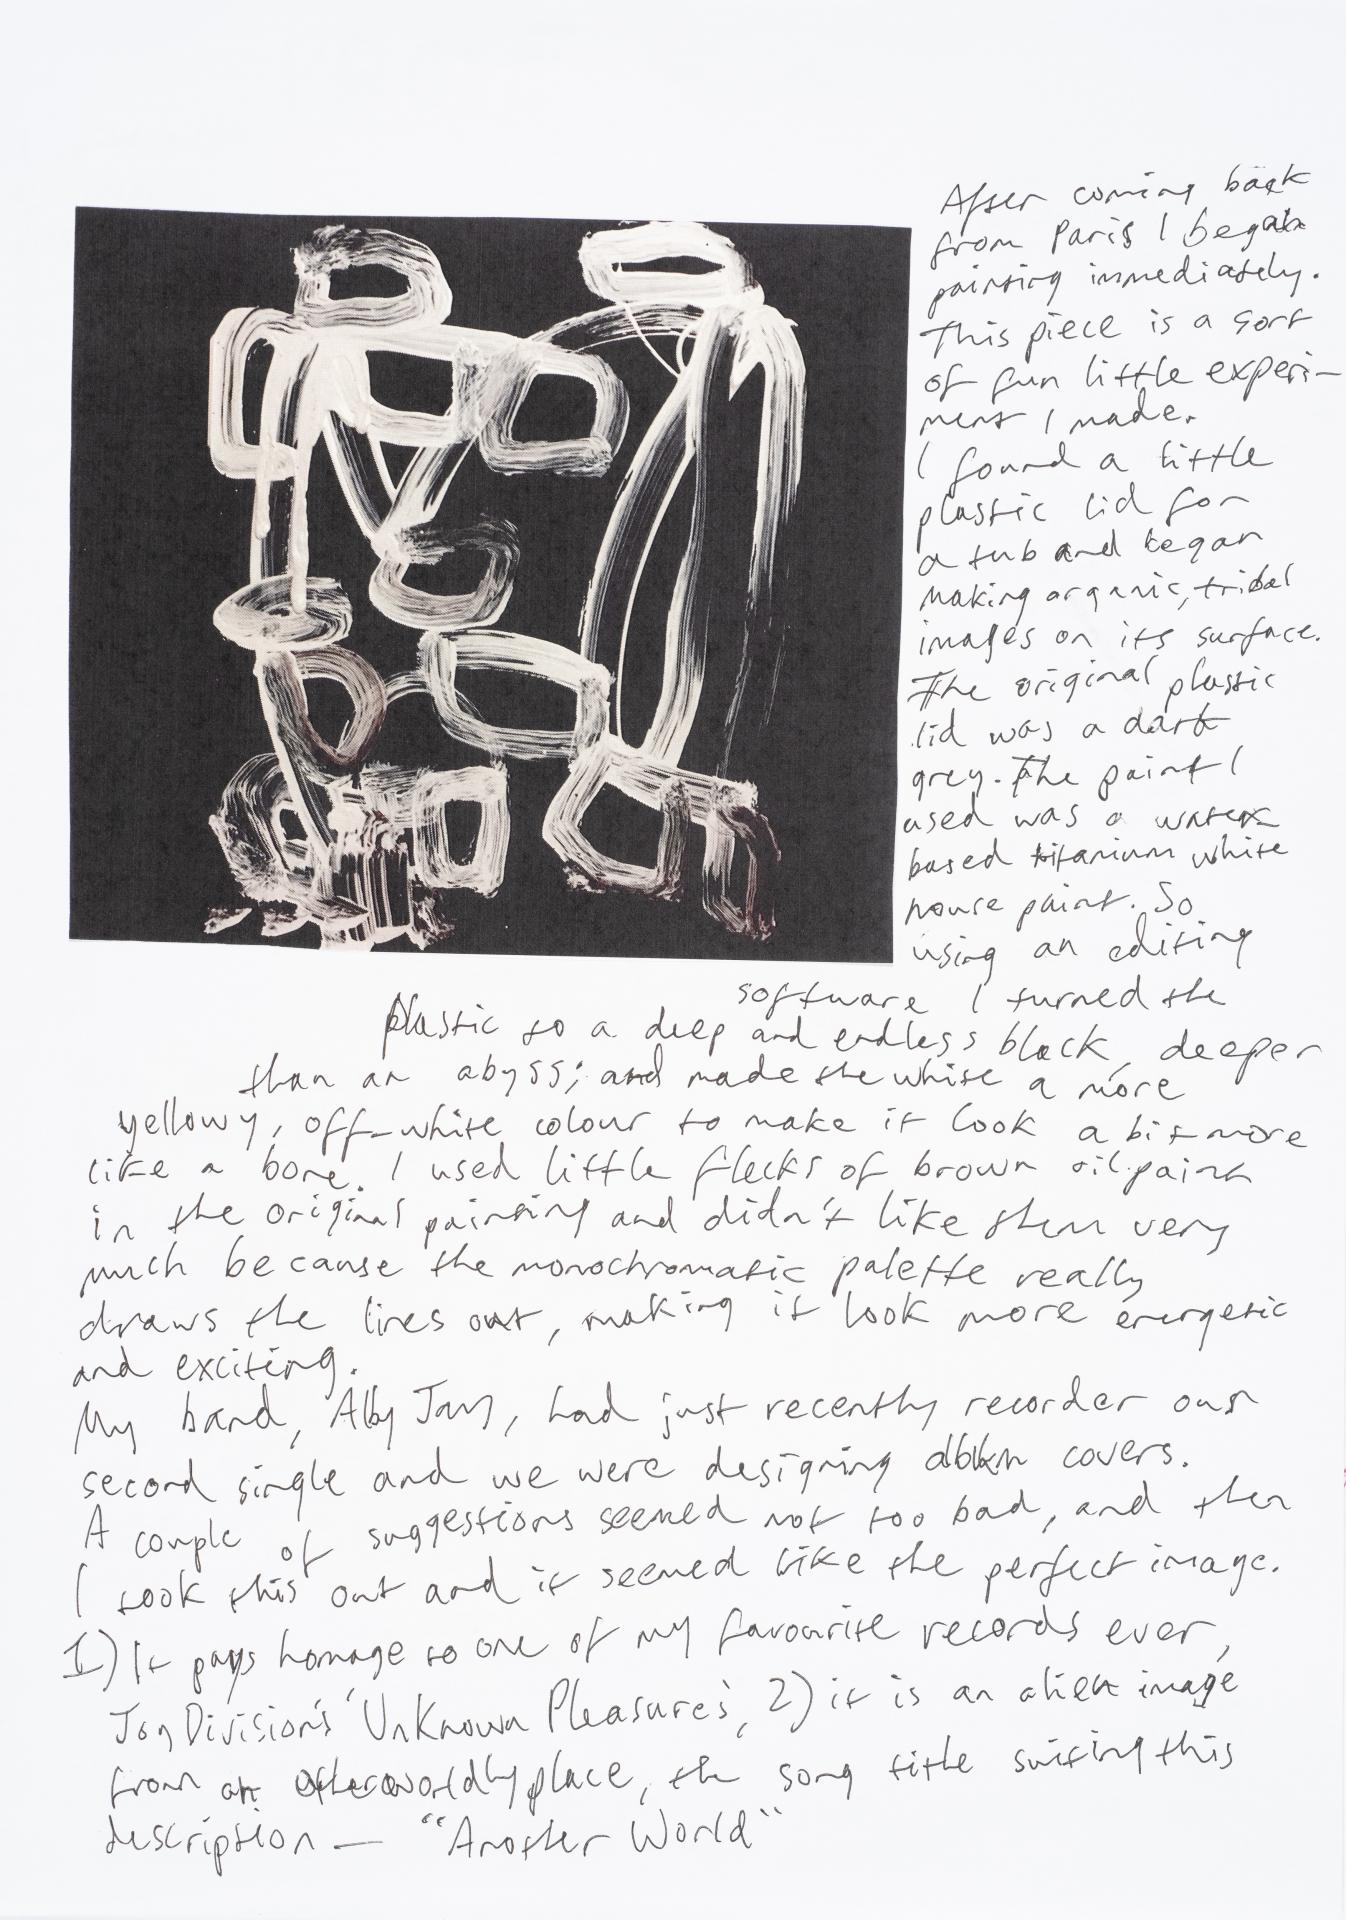 After coming back
from Paris I began
painting immediately.
This piece is a sort
of fun little experi-
ment I made.
I found a little
plastic lid for
a tub and began
making organic, tribal
images on its surface.
The original plastic
lid was a dark
grey. The paint I
used was a water
based titanium white
house paint. So
using an editing
software I turned the
plastic to a deep and endless black, deeper
than an abyss; and made the white a more
yellowy, off-white colour to make it look a bit more
like a bone. I used little flecks of brown oil paint
in the original painting and didn't like them very
much because the monochromatic palette really
draws the lines out, making it look more energetic
and exciting.
My band, Alby Jam, had just recently recorder our
second single and we were designing covers.
A couple of suggestions seemed not too bad, and then
I took this out and it seemed like the perfect image.
1) It pays homage to one of my favourite records ever,
Joy Division's 'Unknown Pleasures', 2) it is an alien image
from an otherworldly place, the song title suiting this
description — "Another World"